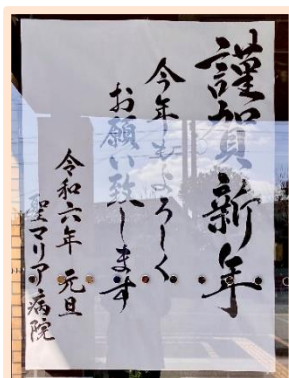 謹賀新年
今年もよろしく
お願い致します
令和六年 元旦
聖マリア病院